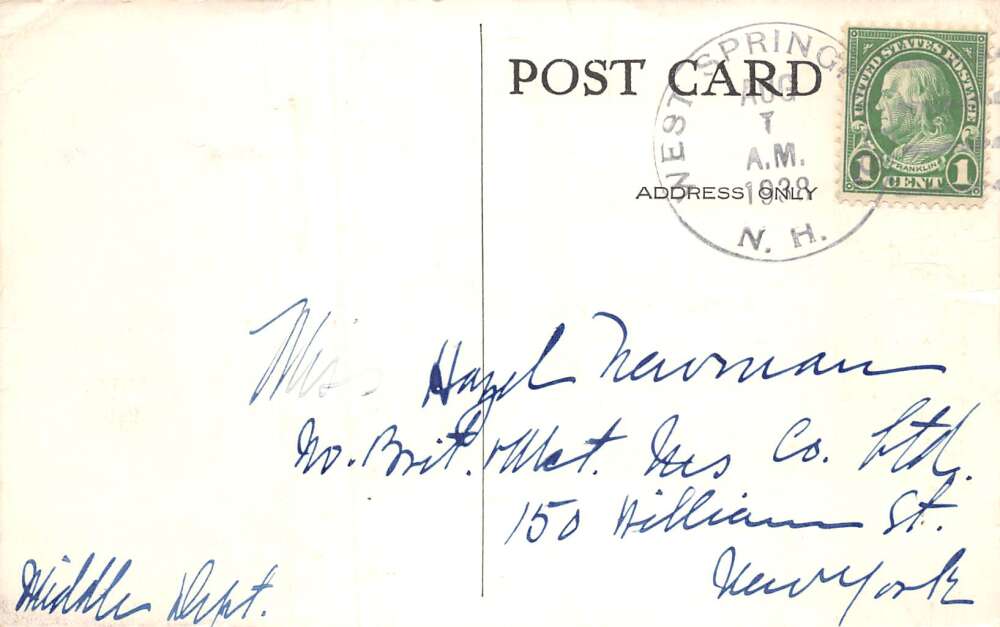 POST CARD
ADDRESS ONLY
WEST SPRING
AUG
1
A.M.
1938
N. H.
UNITED STATES POSTAGE
FRANKLIN
1 CENT 1
Miss Hazel Newman
No. Brit. & Mct. Ins Co. Ltd.
150 William St.
New York
Middle Dept.